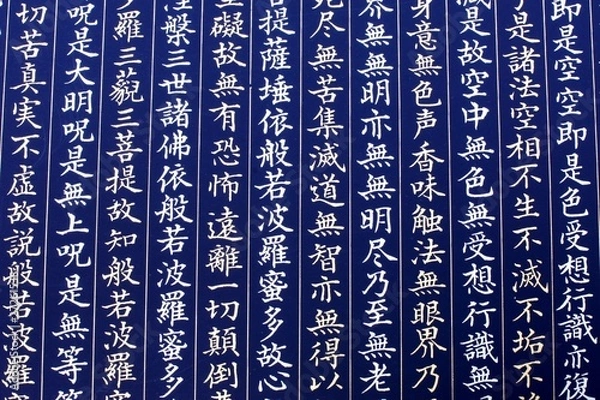 即是空空即是色受想行識亦復
是諸法空相不生不滅不垢不
減是故空中無色無受想行識無
身意無色声香味触法無眼界乃
界無無明亦無無明尽乃至無老
死尽無苦集滅道無智亦無得以
菩提薩埵依般若波羅蜜多故心
礙故無有恐怖遠離一切顛倒
涅槃三世諸佛依般若波羅蜜多
多羅三藐三菩提故知般若波羅
呪是大明呪是無上呪是無等等
切苦真実不虚故説般若波羅